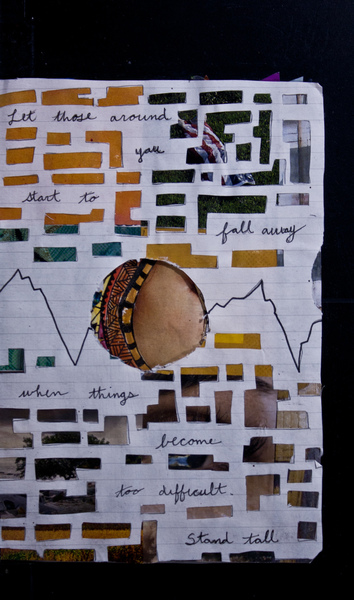 Let those around
you
start to
fall away
when things
become
too difficult.
Stand tall